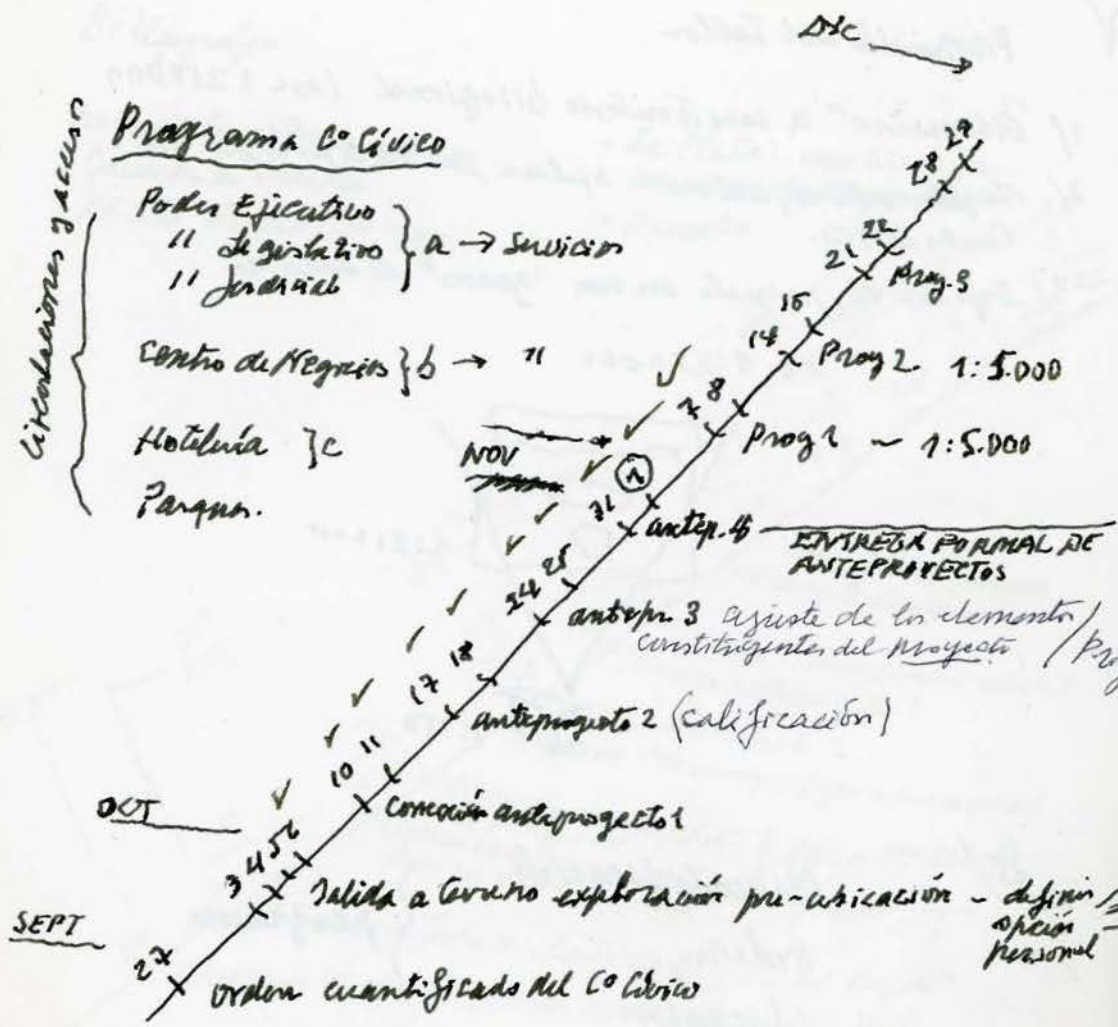 DIC
Programa Cº Cívico
Circulaciones y accesos
Poder Ejecutivo
" Legislativo } a → Servicios
" Judicial
Centro de Negocios } b → "
Hotelería } c
Parques.
28 29
21 22
Proy. 3
14 15
Proy 2. 1:5.000
7 8
Proy 1 — 1:5.000
NOV
31 1
antep. 4
ENTREGA FORMAL DE
ANTEPROYECTOS
24 25
antepr. 3 ajuste de los elementos /
constituyentes del proyecto / Proy
17 18
anteproyecto 2 (calificación)
10 11
corrección anteproyecto 1
OCT
3 4 5 6
Salida a terreno exploración pre-ubicación – definir
opción
personal
SEPT
27
orden cuantificado del Cº Cívico